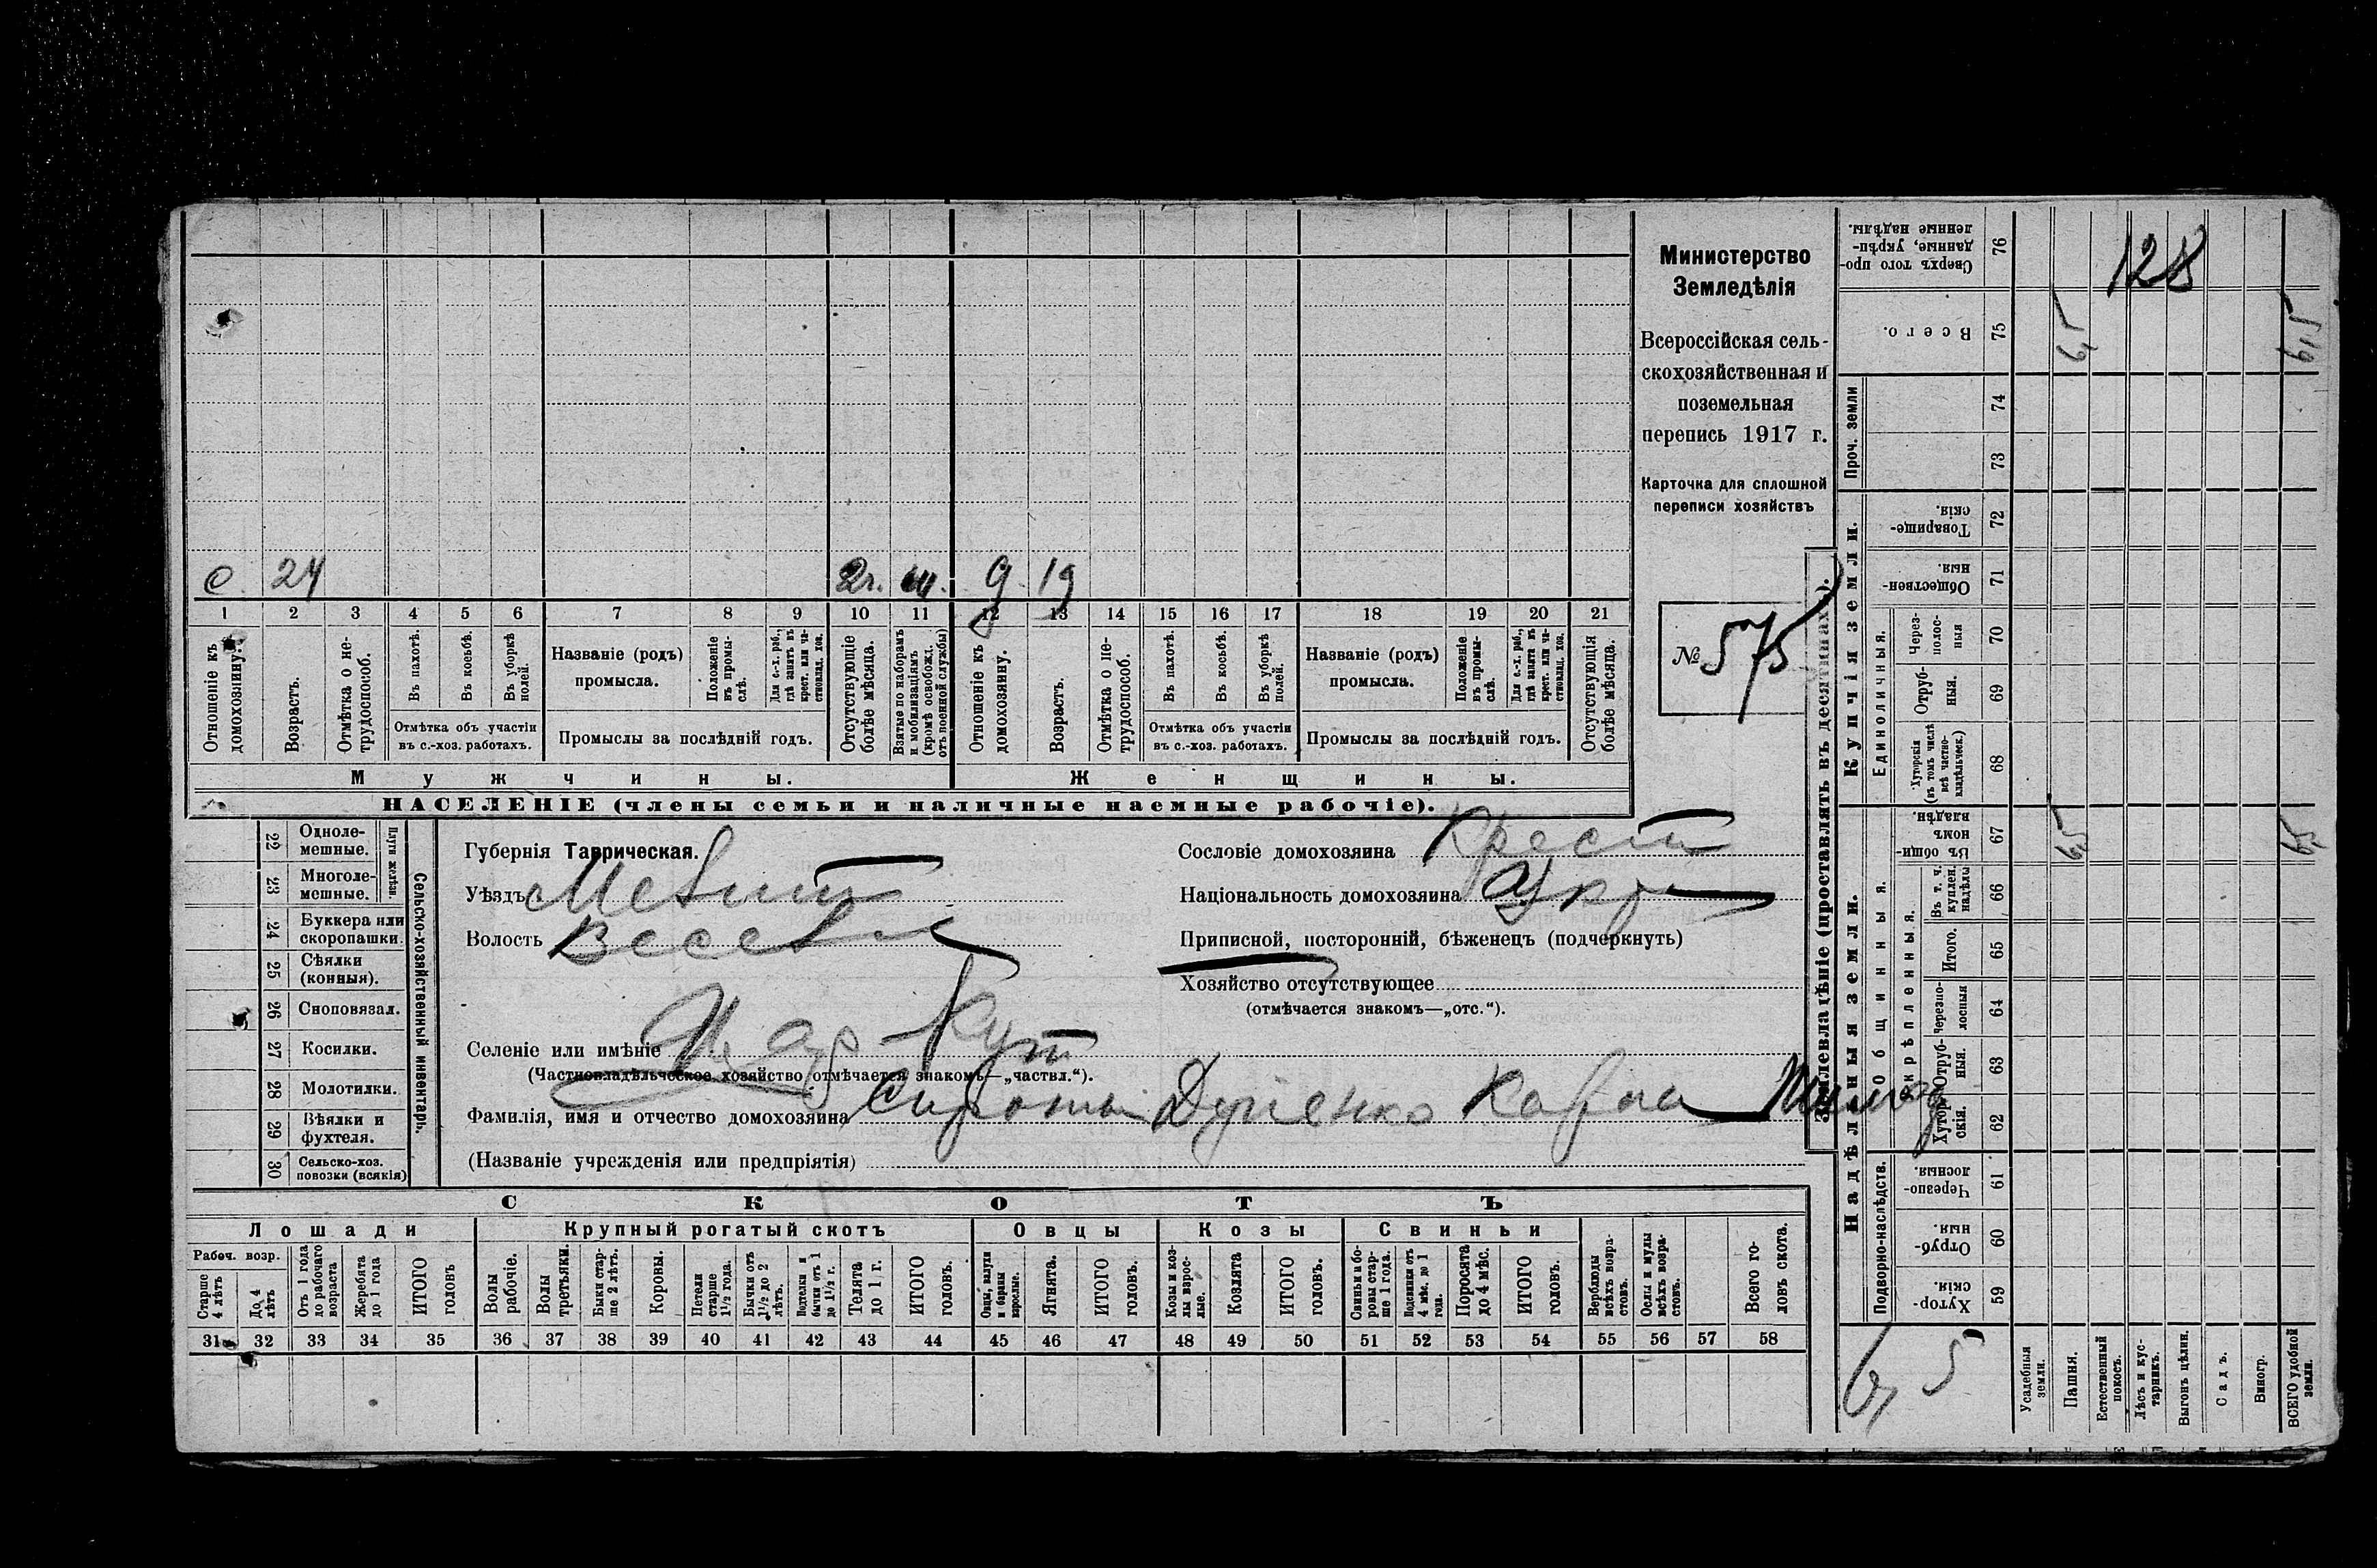 Министерство
Земледѣлія
Всероссійская сель-
скохозяйственная и
поземельная
перепись 1917 г.
Карточка для сплошной
переписи хозяйствъ
№ 575
с. 24 2г. д. 19
1 2 3 4 5 6 7 8 9 10 11 12 13 14 15 16 17 18 19 20 21
Отношеніе къ домохозяину.
Возрастъ.
Отмѣтка о не-трудоспособ.
Въ пахотѣ.
Въ косьбѣ.
Въ уборкѣ полей.
Отмѣтка объ участіи
въ с.-хоз. работахъ.
Названіе (родъ)
промысла.
Положеніе въ промы-слѣ.
Для с.-х. раб., гдѣ занятъ въ крест. или ча-стновлад. хоз.
Промыслы за послѣдній годъ.
Отсутствующіе болѣе мѣсяца.
Взятые по наборамъ и мобилизаціямъ (кромѣ освобожд. отъ военной службы)
Отношеніе къ домохозяину.
Возрастъ.
Отмѣтка о не-трудоспособ.
Въ пахотѣ.
Въ косьбѣ.
Въ уборкѣ полей.
Отмѣтка объ участіи
въ с.-хоз. работахъ.
Названіе (родъ)
промысла.
Положеніе въ промы-слѣ.
Для с.-х. раб., гдѣ занята въ крест. или ча-стновлад. хоз.
Промыслы за послѣдній годъ.
Отсутствующія болѣе мѣсяца.
Мужчины.
Женщины.
НАСЕЛЕНІЕ (члены семьи и наличные наемные рабочіе).
22 Одноле-мешные.
23 Многоле-мешные.
Плуги желѣзн.
24 Буккера или скоропашки.
25 Сѣялки (конныя).
26 Сноповязал.
27 Косилки.
28 Молотилки.
29 Вѣялки и фухтеля.
30 Сельско-хоз. повозки (всякія)
Сельско-хозяйственный инвентарь.
Губернія Таврическая.
Уѣздъ Мелит
Волость Весел
Селеніе или имѣніе
(Частновладѣльческое хозяйство отмѣчается знакомъ—„частвл.“).
Фамилія, имя и отчество домохозяина Сироты Карпа
(Названіе учрежденія или предпріятія)
Сословіе домохозяина Крест
Національность домохозяина Укр
Приписной, посторонній, бѣженецъ (подчеркнуть)
Хозяйство отсутствующее
(отмѣчается знакомъ—„отс.“).
СКОТЪ
Лошади
Рабоч. возр.
Старше 4 лѣтъ
До 4 лѣтъ
Отъ 1 года до рабочаго возраста
Жеребята до 1 года
ИТОГО головъ
Крупный рогатый скотъ
Волы рабочіе.
Волы третьяки.
Быки стар-ше 2 лѣтъ.
Коровы.
Нетели старше 1½ года.
Бычки отъ 1½ до 2 лѣтъ.
Подтелки и бычки отъ 1 до 1½ г.
Телята до 1 г.
ИТОГО головъ.
Овцы
Овцы, валухи и бараны взрослые.
Ягнята.
ИТОГО головъ.
Козы
Козы и коз-лы взрос-лые.
Козлята
ИТОГО головъ.
Свиньи
Свиньи и бо-ровы стар-ше 1 года.
Подсвинки отъ 4 мѣс. до 1 года.
Поросята до 4 мѣс.
ИТОГО головъ.
Верблюды всѣхъ возра-стовъ.
Ослы и мулы всѣхъ возра-стовъ.
Всего го-ловъ скота.
31 32 33 34 35 36 37 38 39 40 41 42 43 44 45 46 47 48 49 50 51 52 53 54 55 56 57 58
Землевладѣніе (проставлять въ десятинахъ).
Надѣльныя земли.
Подворно-наслѣдств.
Хутор-скія. 59
Отруб-ныя. 60
Черезпо-лосныя. 61
Общинныя.
Укрѣпленныя.
Хутор-скія. 62
Отруб-ныя. 63
Черезпо-лосныя 64
Итого. 65
Въ т. ч. куплен. надѣлы 66
Въ общин-номъ владѣн. 67
Купчія земли.
Единоличныя.
Хуторскія (въ томъ числѣ всѣ частно-владѣльческ.) 68
Отруб-ныя. 69
Через-полос-ныя 70
Обществен-ныя. 71
Товарище-скія. 72
Проч. земли
73
74
Всего. 75
Сверхъ того про-данные, укрѣп-ленные надѣлы. 76
128
Усадебныя земли.
Пашня.
Естественный покосъ.
Лѣсъ и кус-тарникъ.
Выгонъ цѣлин.
Садъ.
Виногр.
ВСЕГО удобной земли.